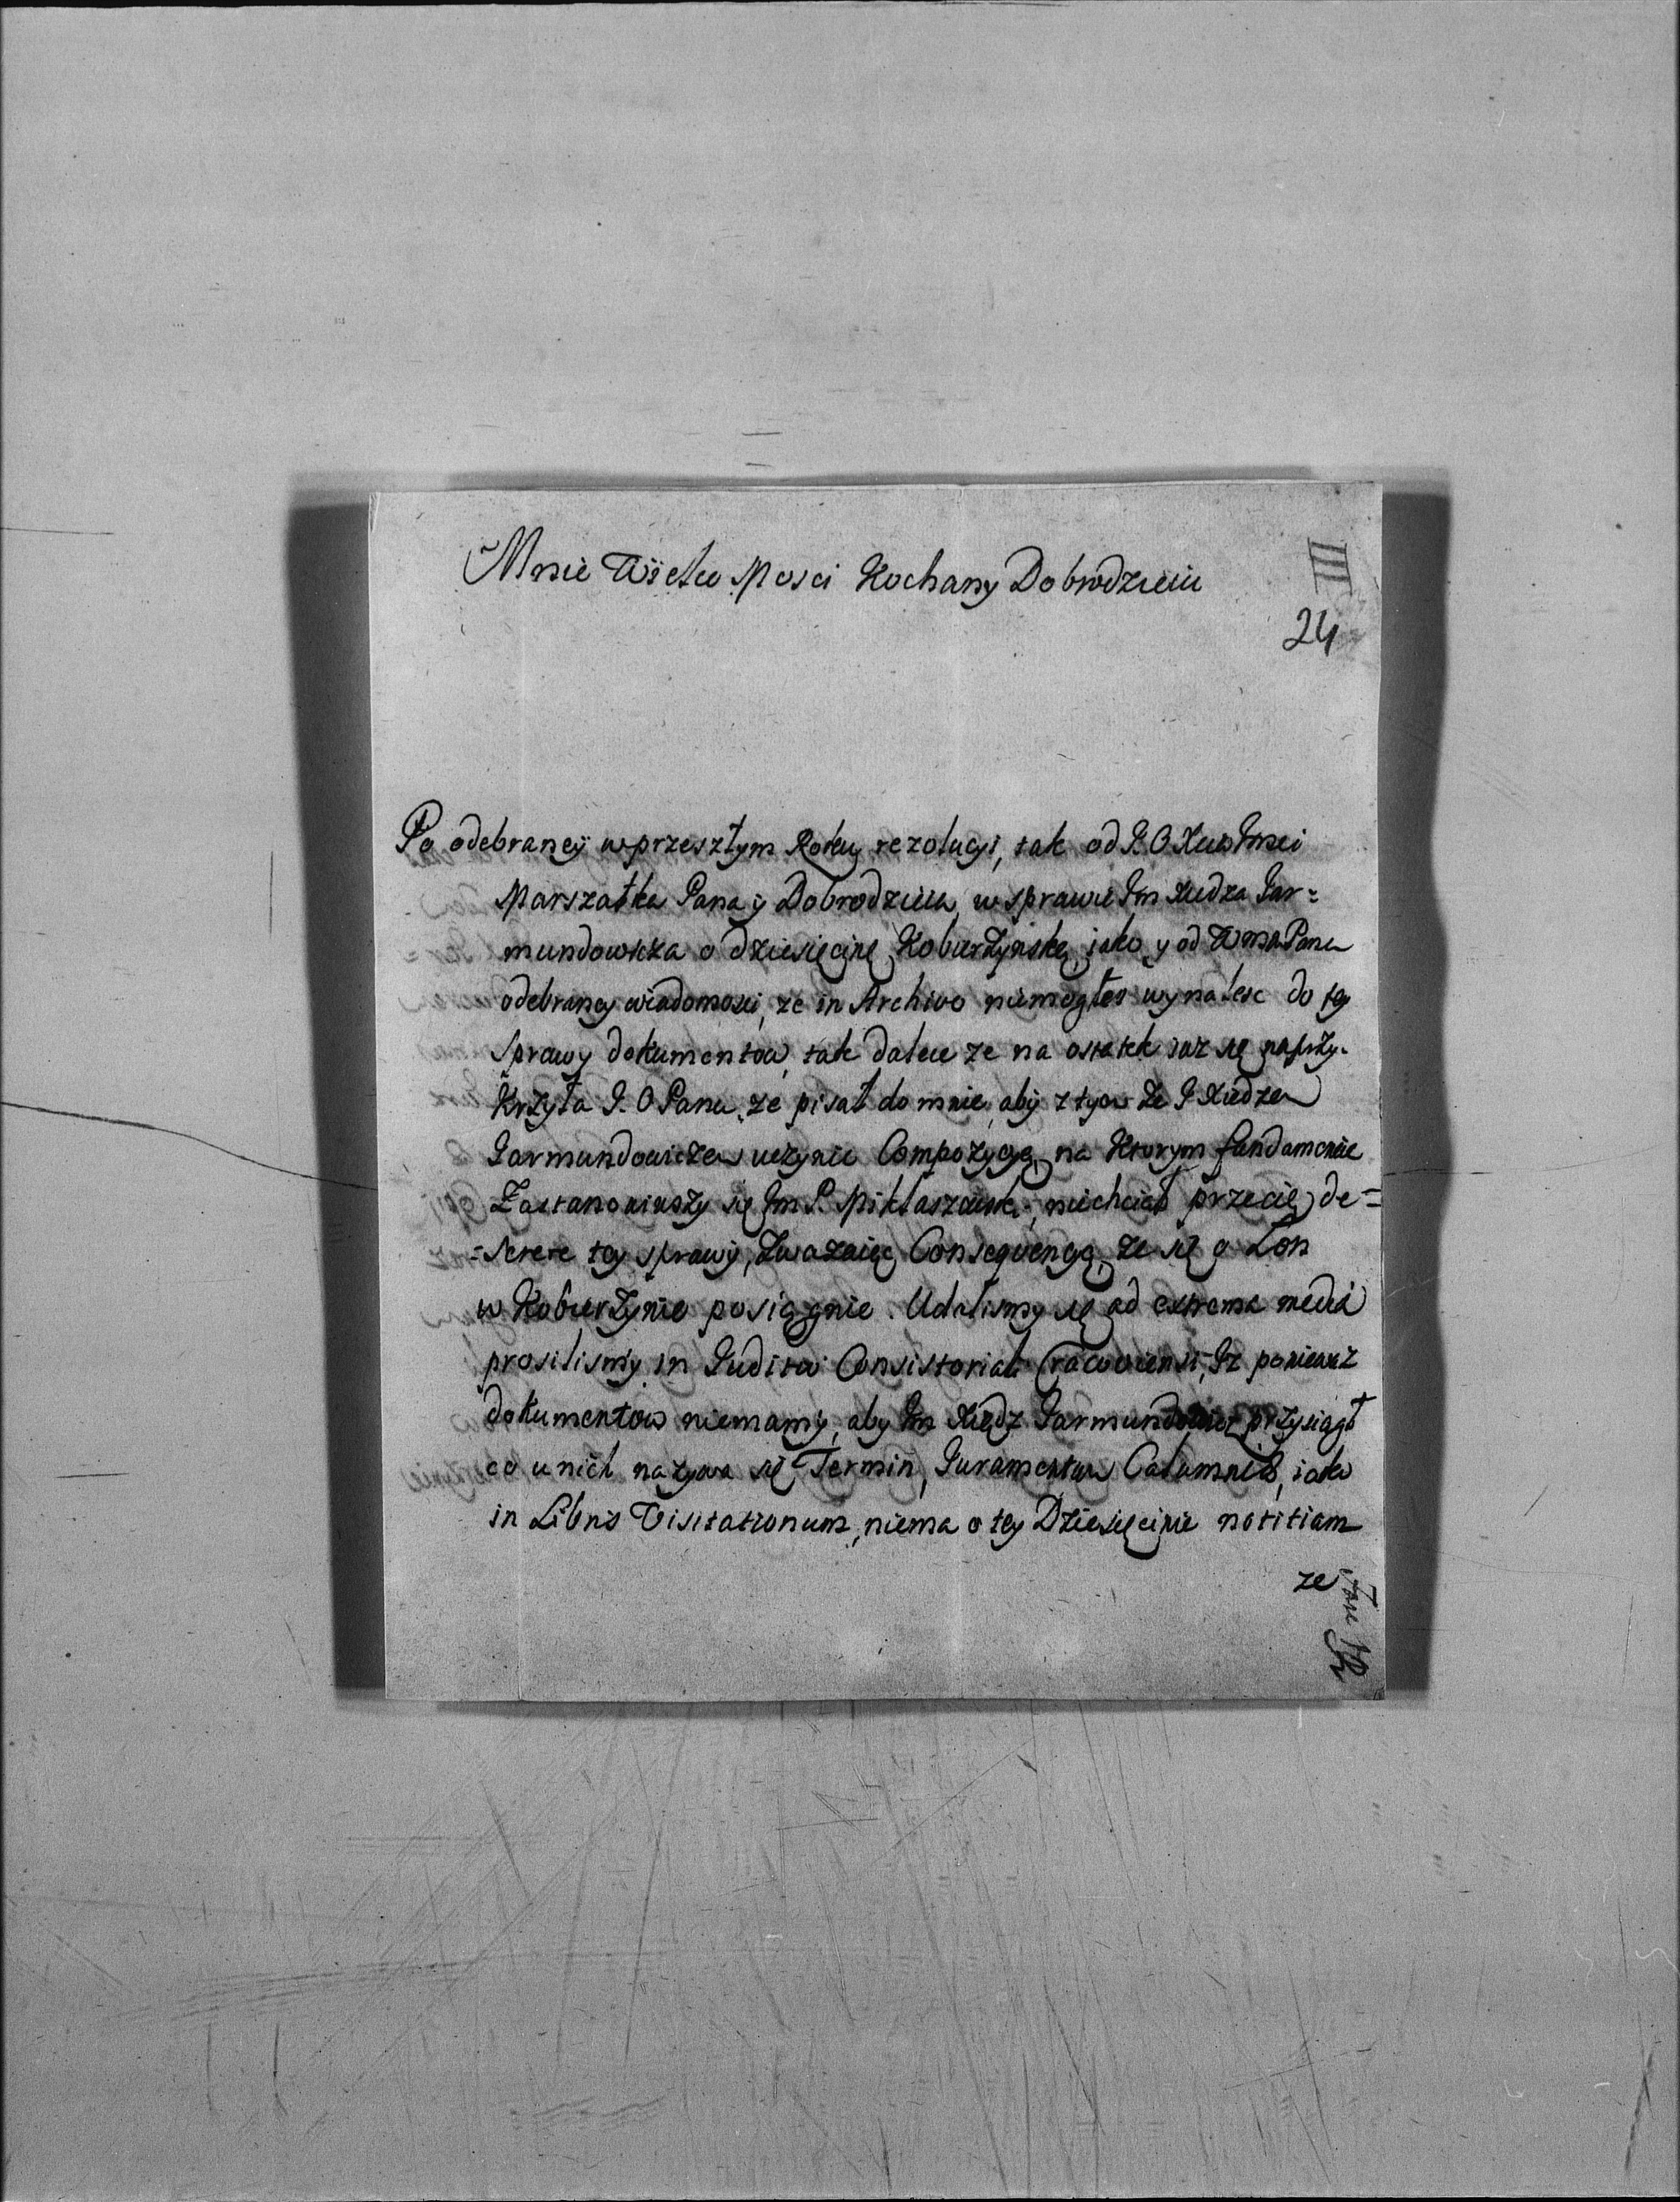 Mnie Wielce Mosci Kochany Dobrodzieiu
III
24
Po odebraney w przeszłym Roku rezolucyi, tak od J. O. Xcia Jmci
Marszałka Pana y Dobrodzieia, w sprawie Jm Xiedza Jar=
mundowicza o dziesięcinę Kobierzynską, iako y od WmPana
odebraney wiadomosci, ze in Archivo niemogłes wynalesc do tey
sprawy dokumentow, tak dalece ze na ostatek iuz się naprzy-
krzyła J. O Panu, ze pisał do mnie, aby z tym ze J Xiedzem
Jarmundowiczem uczynic Compozycyą, na ktorym fundamencie
Zastanowiwszy się Jm P. Miklaszewski, niechciał przecię de=
=serere tey sprawy, zwazaiąc Consequencyą, ze się o Łon
w Kobierzynie posiągnie. Udalismy się ad extrema media
prosilismy in Juditio Consistoriali Cracoviensi, Iz poniewaz
dokumentow niemamy, aby Jm Xiądz Jarmundowicz przysiągł
co u nich nazywa się Termin, Juramentum Calumniæ, iako
in Libris Visitationum, niema o tey Dziesięcinie notitiam
ze